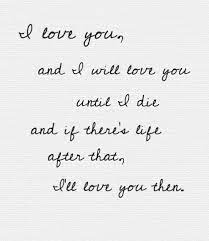 I love you,
and I will love you
until I die
and if there's life
after that,
I'll love you then.